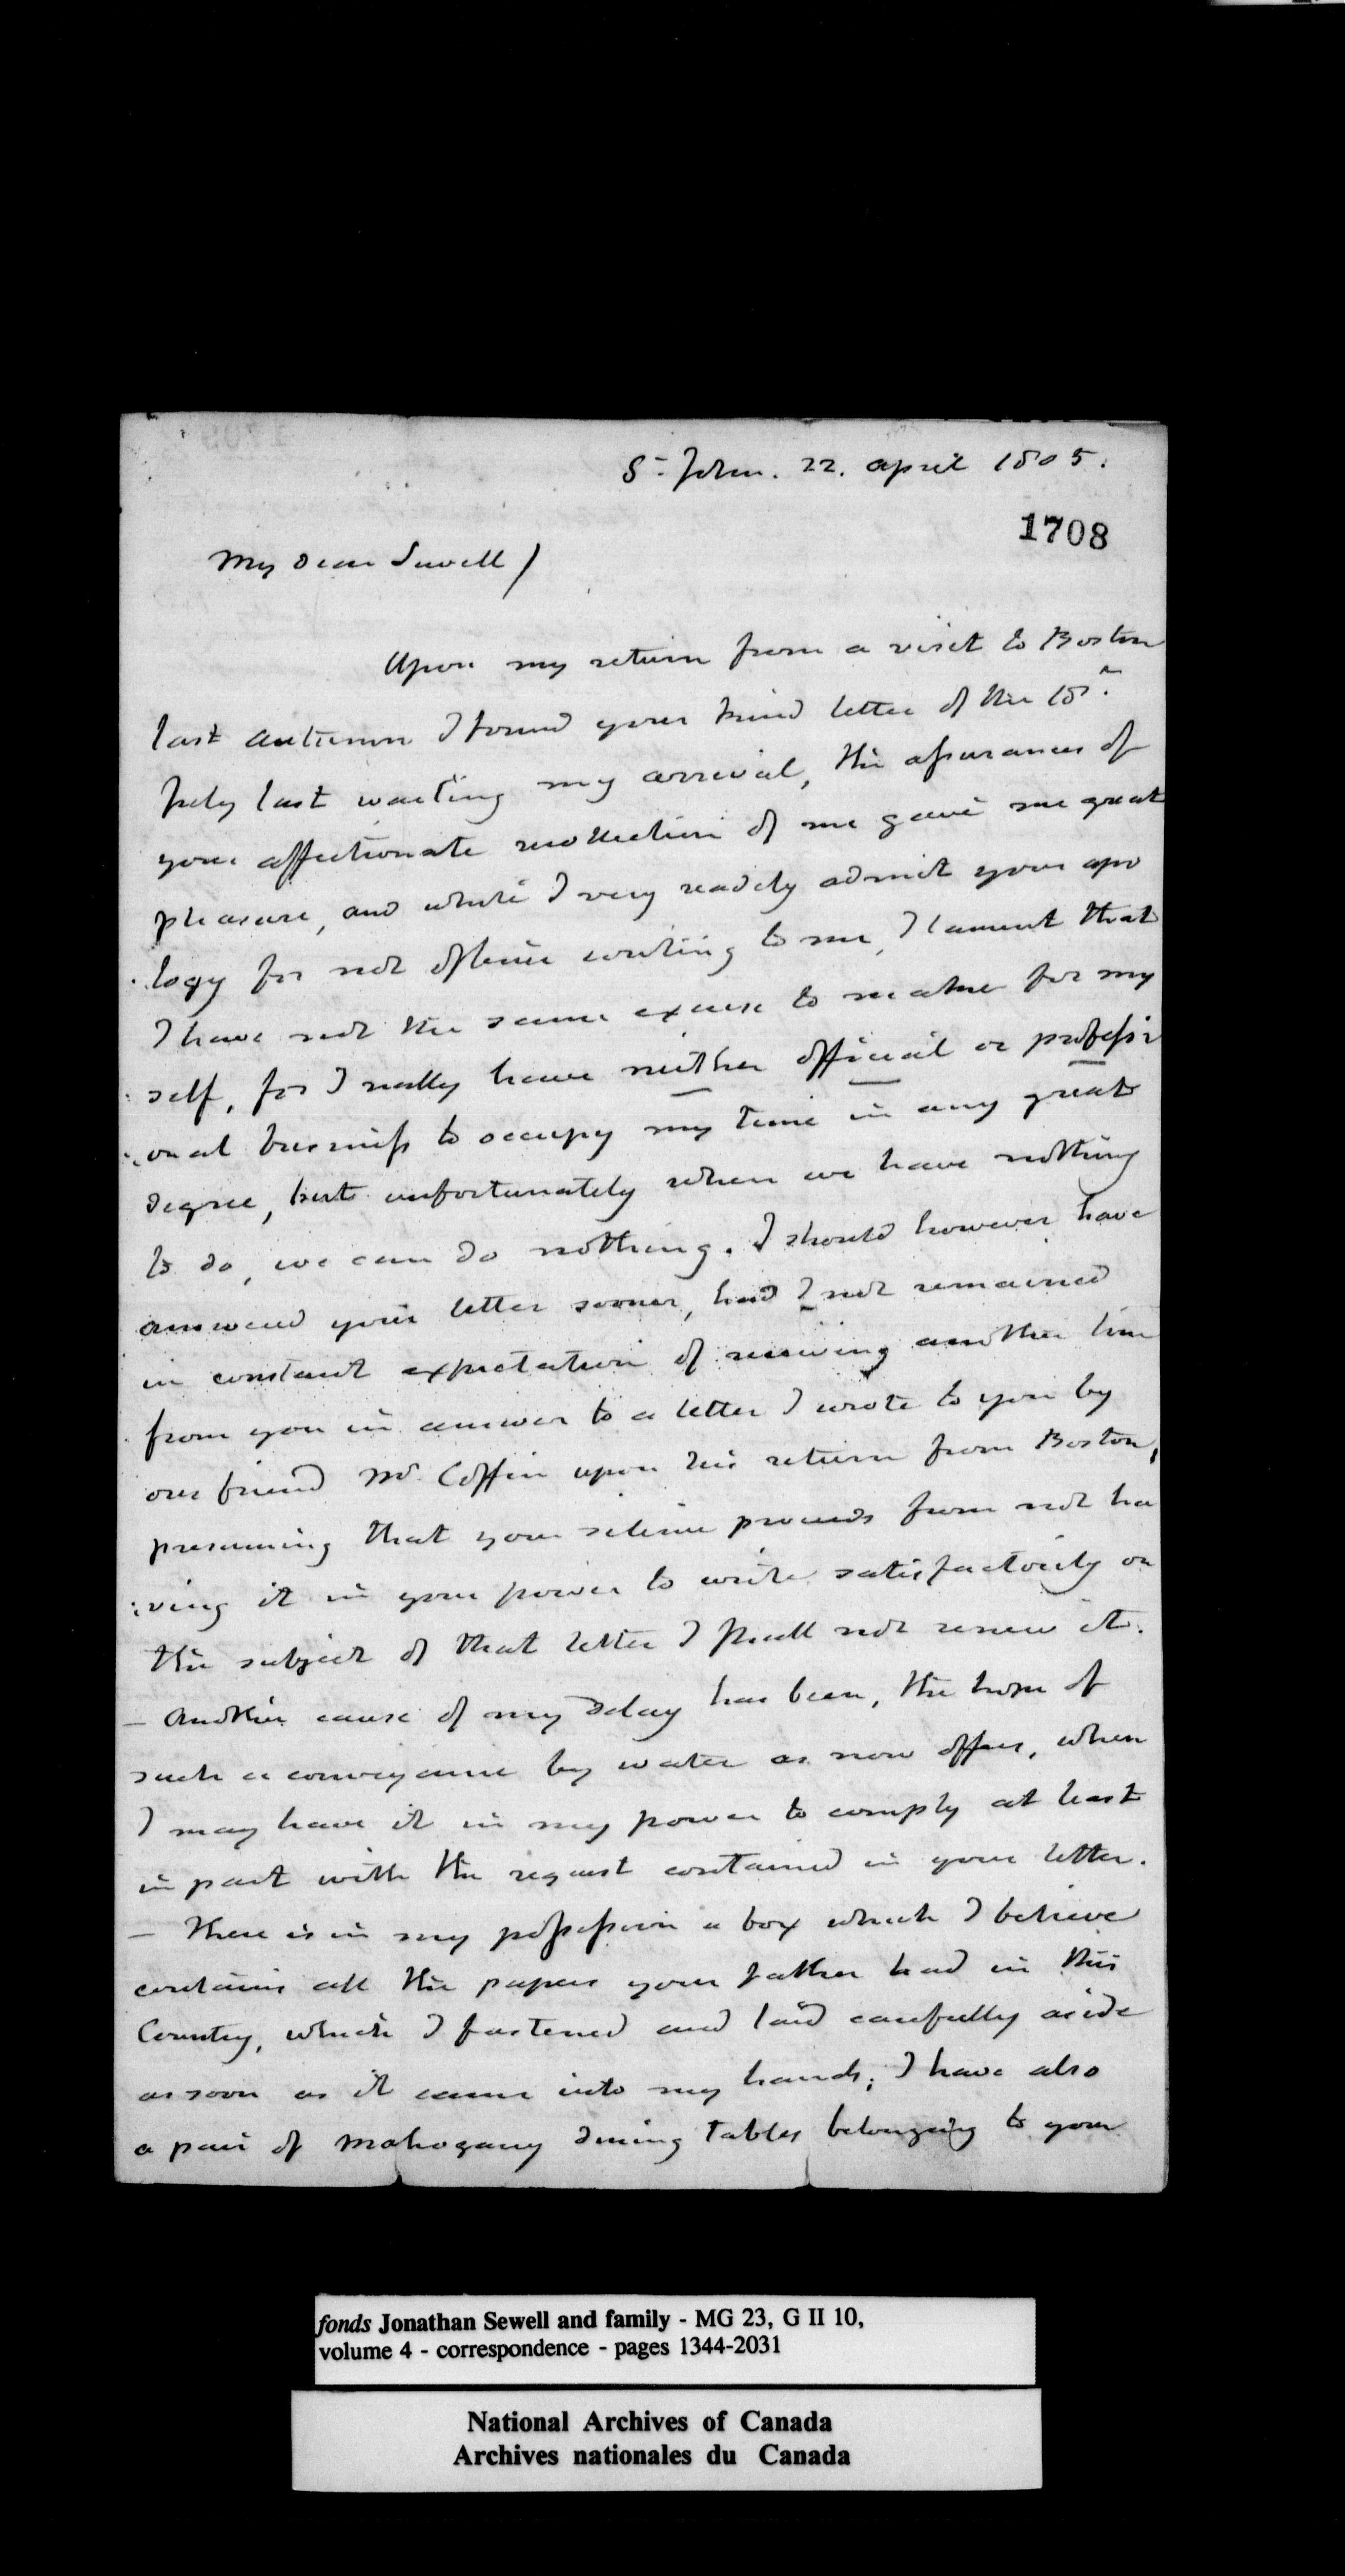 St John. 22. april 1805.
1708
My Dear Sewell /
Upon my return from a visit to Boston
last Autumn I found your kind letter of the 18th.
July last waiting my arrival, the assurances of
your affectionate recollection of me gave me great
pleasure, and while I very readily admit your apo
:logy for not oftener writing to me, I lament that
I have not the same excuse to make for my
:self, for I really have neither official or professi
:onal business to occupy my time in any great
degree, but unfortunately when we have nothing
to do, we can do nothing. I should however have
answered your letter sooner, had I not remained
in constant expectation of receiving another line
from you in answer to a letter I wrote to you by
our friend Mr. Coffin upon his return from Boston,
presuming that your silence proceeds from not ha
:ving it in your power to write satisfactorily on
the subject of that letter I shall not renew it.
— Another cause of my delay has been, the hope of
such a conveyance by water as now offers, when
I may have it in my power to comply at least
in part with the request contained in your letter.
— There is in my possession a box which I believe
contains all the papers your father had in this
Country, which I fastened and laid carefully aside
as soon as it came into my hands; I have also
a pair of Mahogany dining Tables belonging to your
fonds Jonathan Sewell and family - MG 23, G II 10,
volume 4 - correspondence - pages 1344-2031
National Archives of Canada
Archives nationales du Canada